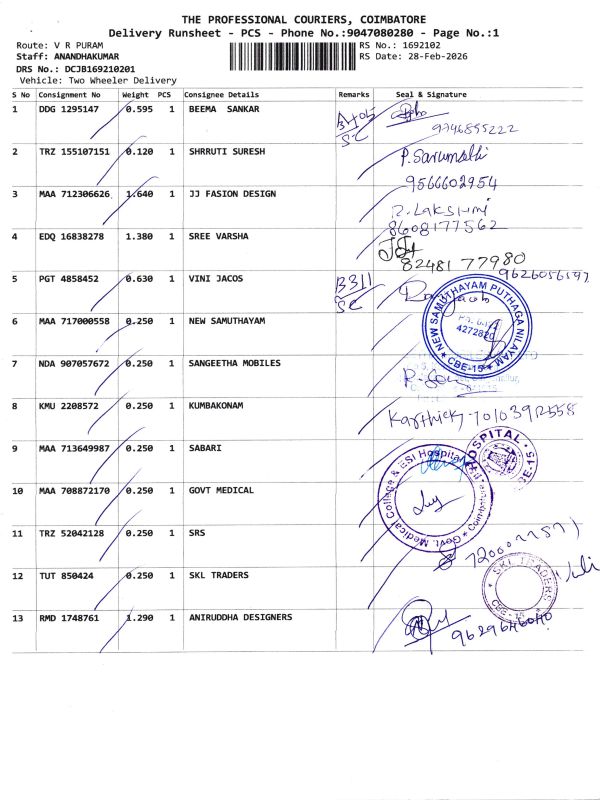 THE PROFESSIONAL COURIERS, COIMBATORE
Delivery Runsheet - PCS - Phone No.:9047080280 - Page No.:1
Route: V R PURAM RS No.: 1692102
Staff: ANANDHAKUMAR RS Date: 28-Feb-2026
DRS No.: DCJB169210201
Vehicle: Two Wheeler Delivery
S No Consignment No Weight PCS Consignee Details Remarks Seal & Signature
1 DDG 1295147 0.595 1 BEEMA SANKAR
9746855222
2 TRZ 155107151 0.120 1 SHRRUTI SURESH P. Sarumathi
9566602954
3 MAA 712306626 1.640 1 JJ FASION DESIGN R. LAKSHMI
8608177562
4 EDQ 16838278 1.380 1 SREE VARSHA
82481 77980
5 PGT 4858452 0.630 1 VINI JACOS B311 SC 9626056197
6 MAA 717000558 0.250 1 NEW SAMUTHAYAM NEW SAMUTHAYAM PUTHAGA NILAYAM CBE-15
7 NDA 907057672 0.250 1 SANGEETHA MOBILES
8 KMU 2208572 0.250 1 KUMBAKONAM Karthick
9 MAA 713649987 0.250 1 SABARI HOSPITAL
10 MAA 708872170 0.250 1 GOVT MEDICAL Govt. Medical College & ESI Hospital
11 TRZ 52042128 0.250 1 SRS
12 TUT 850424 0.250 1 SKL TRADERS SKL TRADERS CBE-15
13 RMD 1748761 1.290 1 ANIRUDDHA DESIGNERS